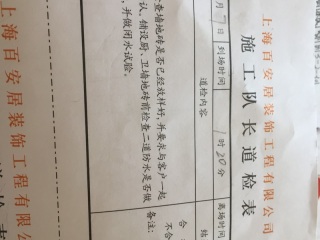 上海百安居装饰工程有限公司
施工队长巡检表
月 7 日 到场时间 1 时 20 分 离场时间
巡检内容
查墙地砖是否已经放样好,并要求与客户一起
认,铺设厨、卫墙地砖前检查二道防水是否做
,并做闭水试验。
合
不合
备注:
上海百安居装饰工程有限公司